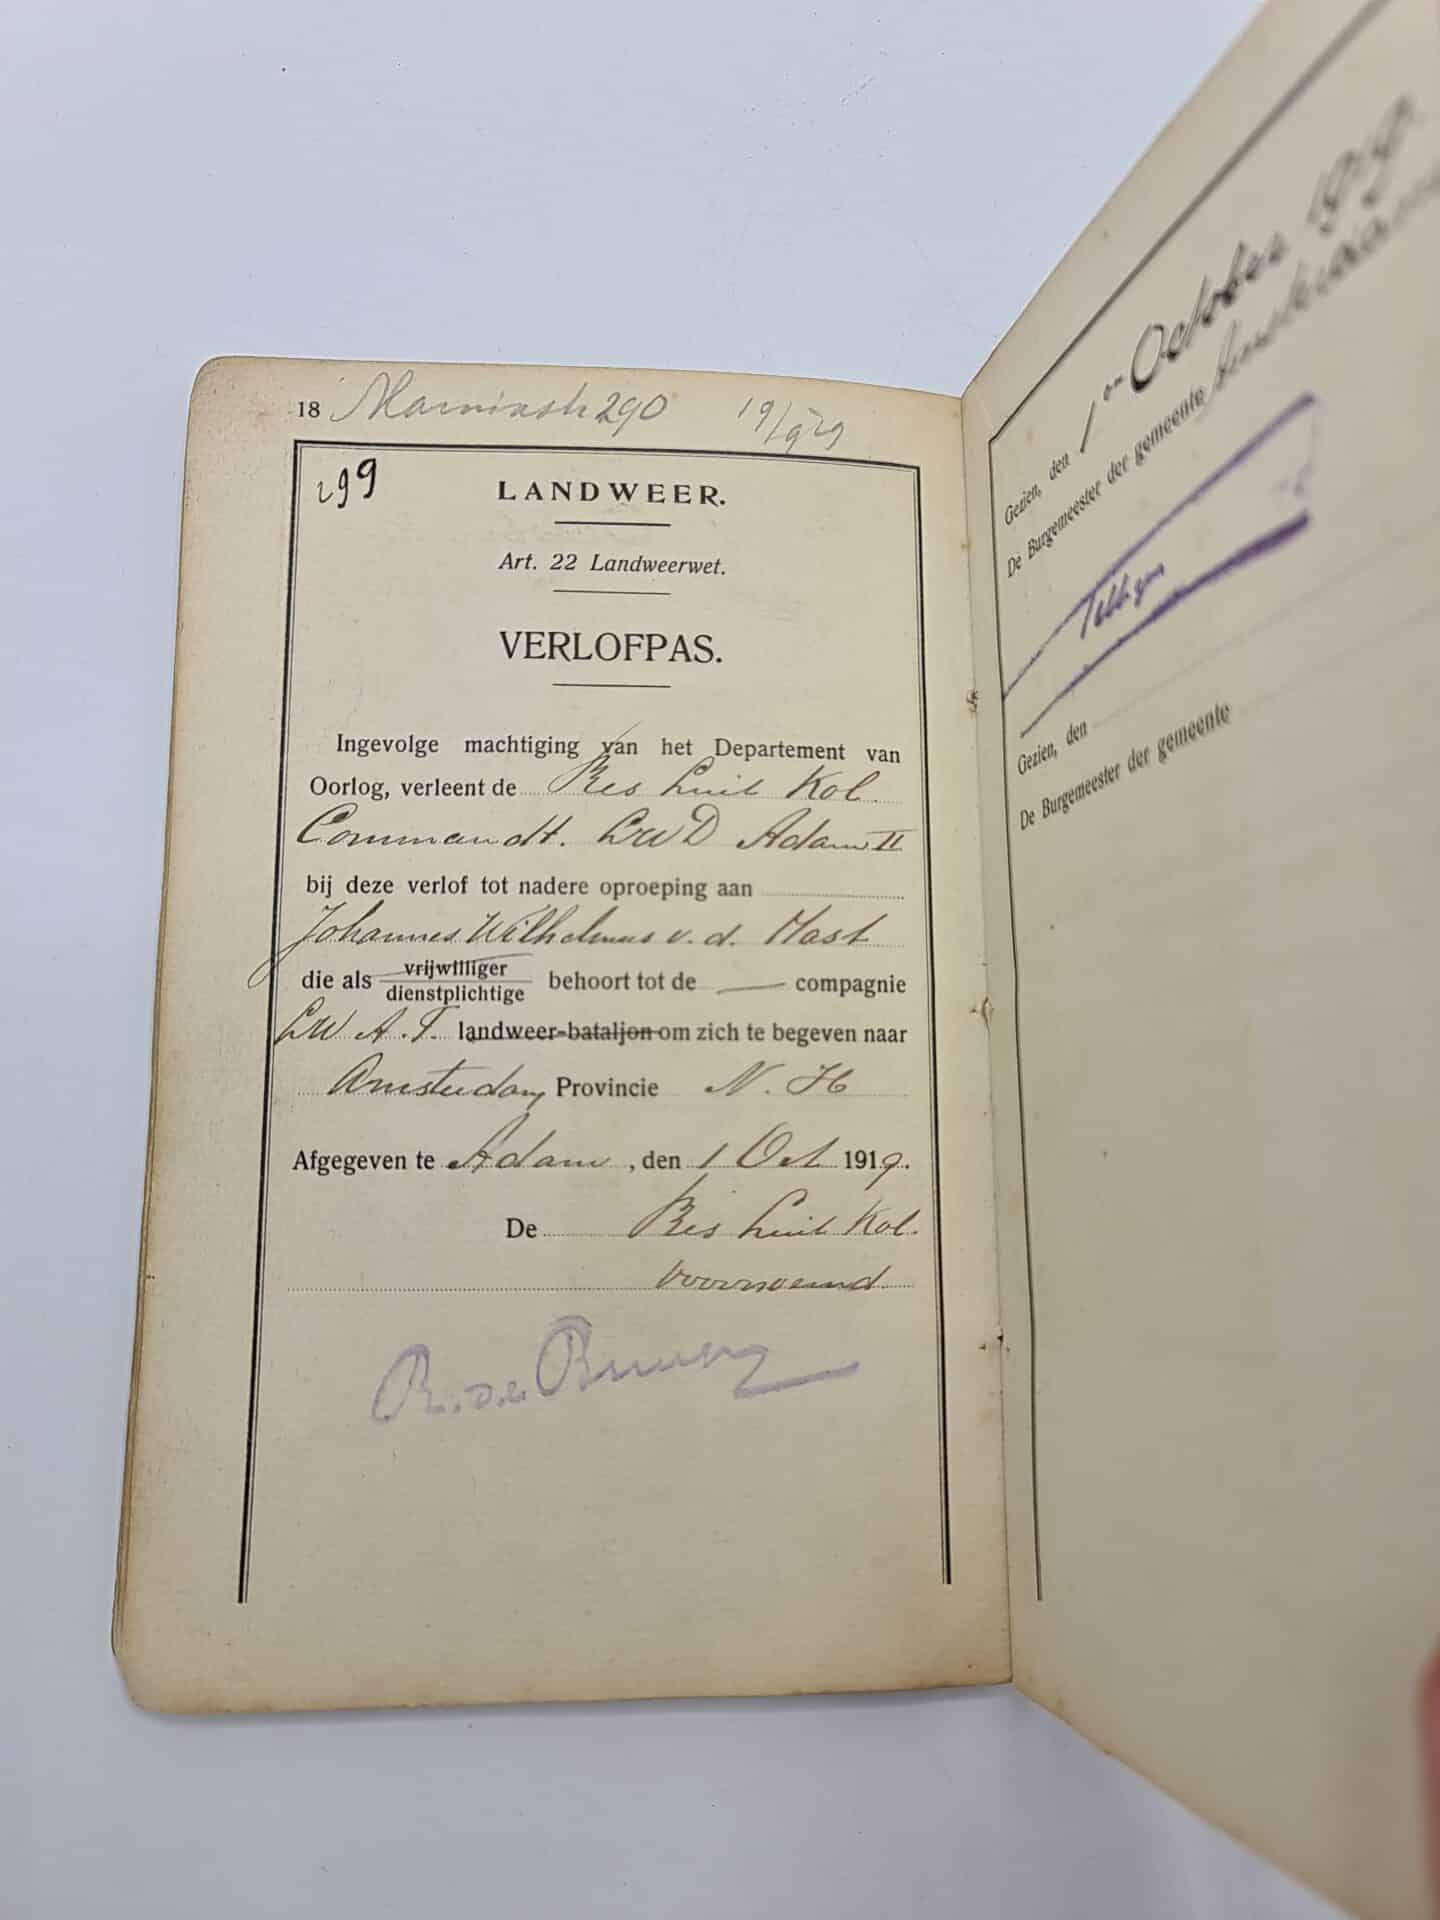 18 290 19/9 29
299
LANDWEER.
Art. 22 Landweerwet.
VERLOFPAS.
Ingevolge machtiging van het Departement van
Oorlog, verleent de Res Luit Kol.
Commandt. LWD Adam II
bij deze verlof tot nadere oproeping aan
Johannes Wilhelmus v. d. Mast
die als vrijwilliger
dienstplichtige behoort tot de — compagnie
LW A. T. landweer-bataljon om zich te begeven naar
Amsterdam Provincie N. H
Afgegeven te Adam, den 1 Oct 1919.
De Res Luit Kol.
voornoemd
R. de
Gezien, den 1en October 1919
De Burgemeester der gemeente Amsterdam
Gezien, den
De Burgemeester der gemeente